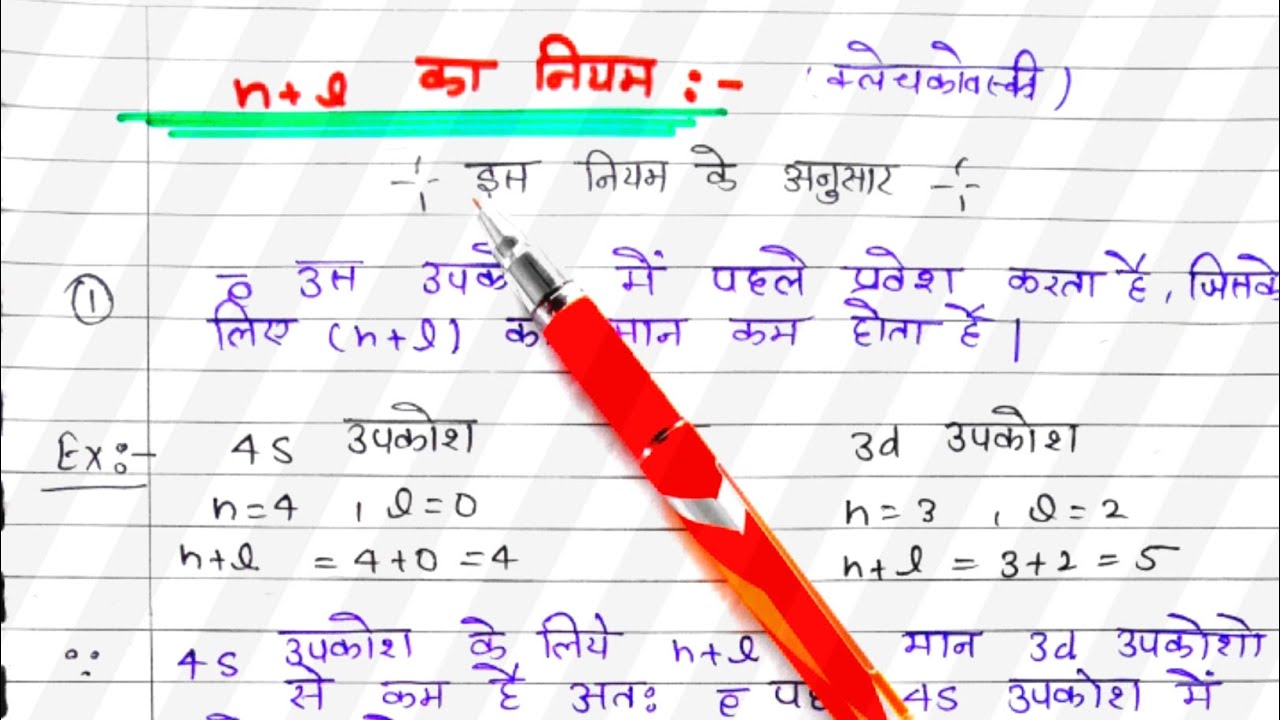 n+l का नियम :- (क्लेचकोवस्की)
इस नियम के अनुसार
① e̅ उस में पहले प्रवेश करता है, जिसके
लिए (n+l) मान कम होता है।
Ex:- 4s उपकोश 3d उपकोश
n=4 , l=0 n=3 , l=2
n+l = 4+0 =4 n+l = 3+2 = 5
∵ 4s उपकोश के लिये n+l मान 3d उपकोशो
से कम है अतः e̅ 4s उपकोश में